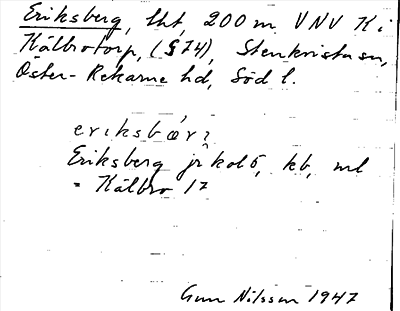 Eriksberg, lht, 200 m VNV Ki
Kälbrotorp, (S 74), Stenkvista sn,
Öster-Rekarne hd, Söd l.
eriksbær̂ı
Eriksberg jrkol 5, kb, ml
" Kälbro 17
Gun Nilsson 1947